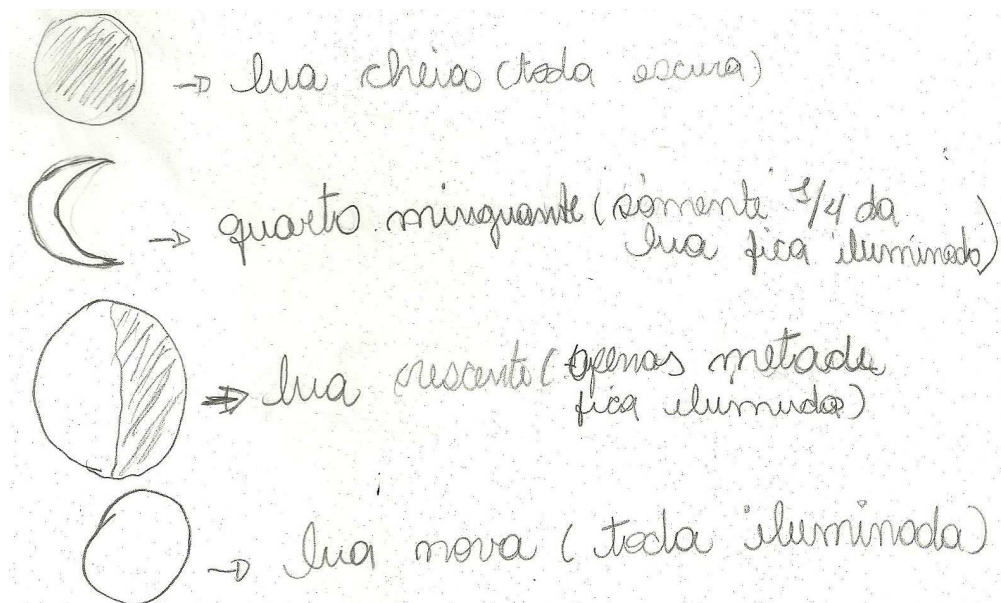 lua cheia (toda escura)
quarto minguante (sómente 1/4 da
lua fica iluminado)
lua crescente (apenas metade
fica ilumnda)
lua nova (toda iluminada)